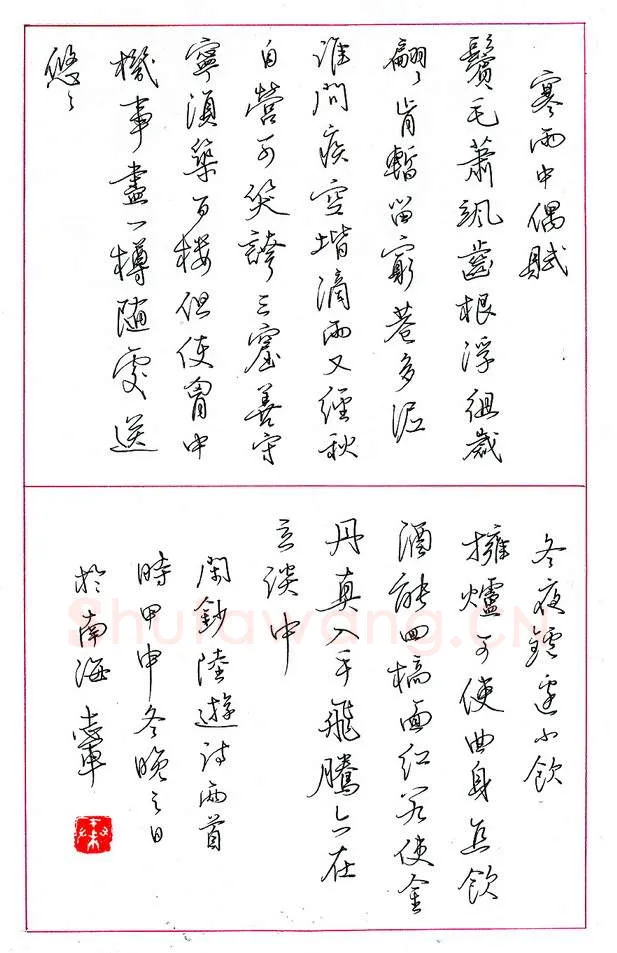 寒雨中偶賦
鬢毛蕭颯齒根浮徂歲
翩〻肯暫留窮巷多泥
誰問疾空堦滴雨又經秋
自營可笑誇三窟善守
寧須築百樓但使胷中
機事盡一樽隨處送
悠〻
冬夜鑪邊小飲
擁爐可使曲身直飲
酒能回槁面紅若使金
丹真入手飛騰亦在
立談中
閑鈔陸遊詩兩首
時甲申冬晚之日
於南海志軍
Shufawang.CN